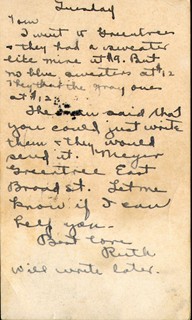 Tuesday
Tom
I went to Greentrees
& they had a sweater
like mine at $9. But
no blue sweaters at $12
They had the gray ones
at $12.
The man said that
you could just write
them & they would
send it. Meyer
Greentree East
Broad St. Let me
know if I can
help you.
Best love
Ruth
will write later.